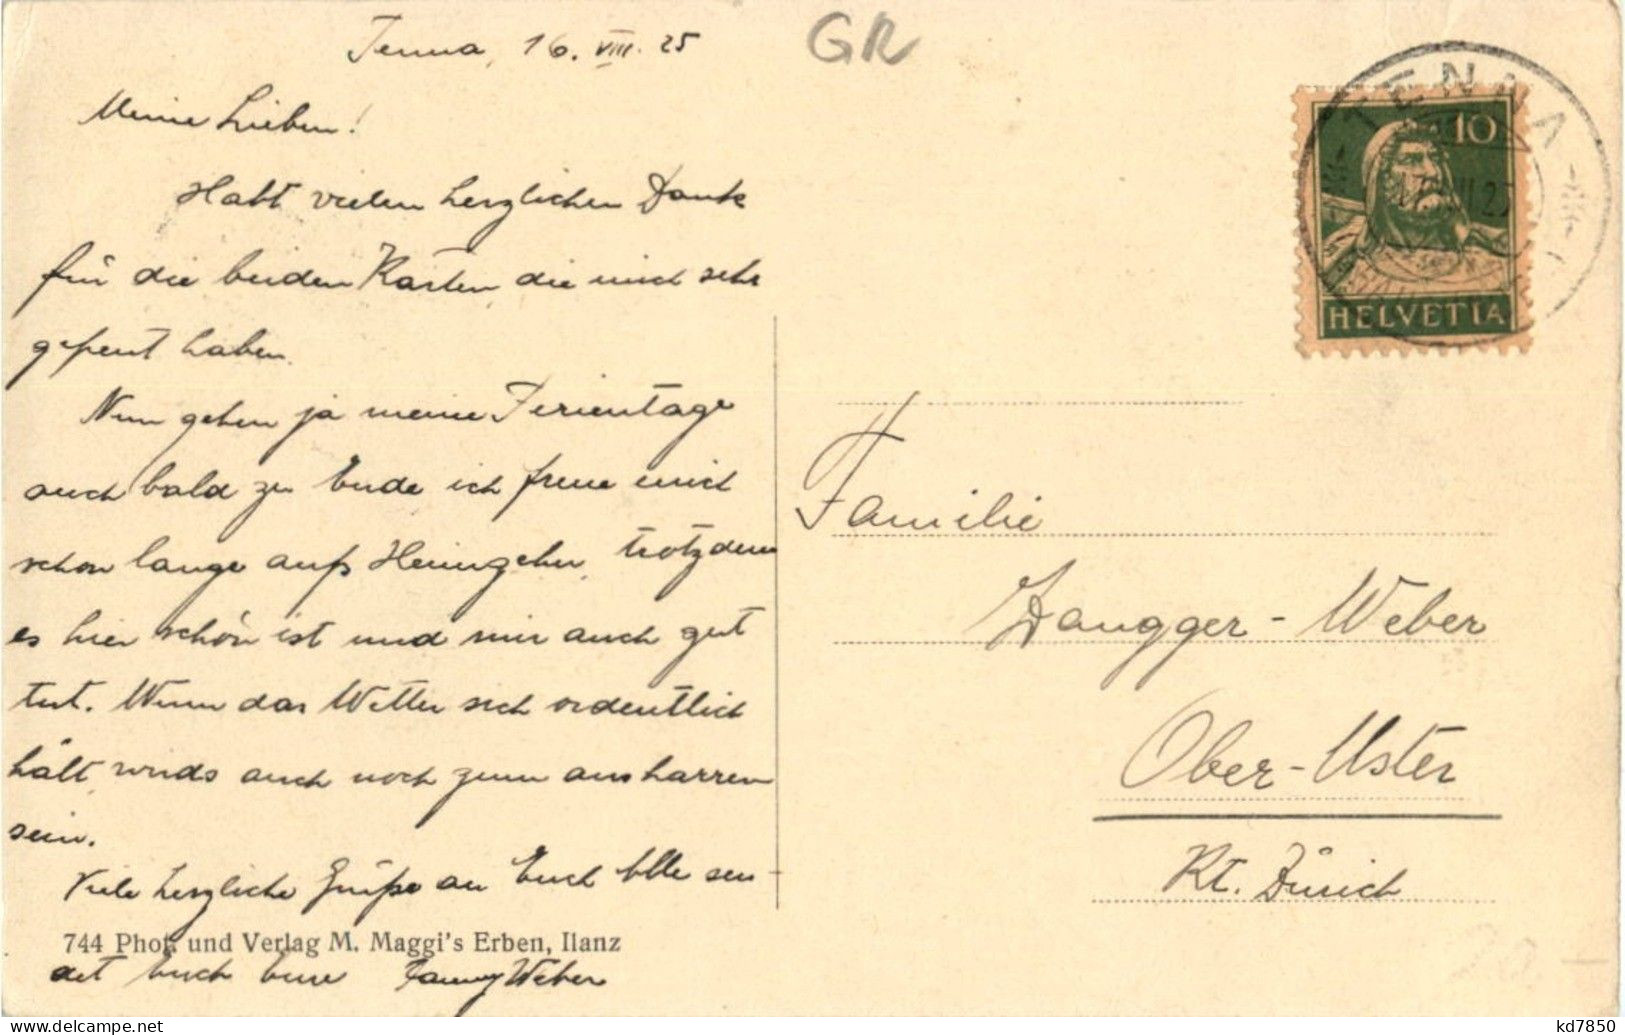 Tenna, 16. VIII. 25
GR
Meine Lieben!
Habt vielen herzlichen Dank
für die beiden Karten, die mich sehr
gefreut haben.
Nun gehen ja meine Ferientage
auch bald zu Ende ich freue mich
schon lange aufs Heimgehn, trotzdem
es hier schön ist und mir auch gut
tut. Wenn das Wetter sich ordentlich
hält, wirds auch noch zum ausharren
sein.
Viele herzliche Grüße an Euch Alle sen-
744 Phot. und Verlag M. Maggi's Erben, Ilanz
det Euch Eure Fanny Weber
TENNA
10
HELVETIA
Familie
Zangger-Weber
Ober-Uster
Kt. Zürich
kd7850